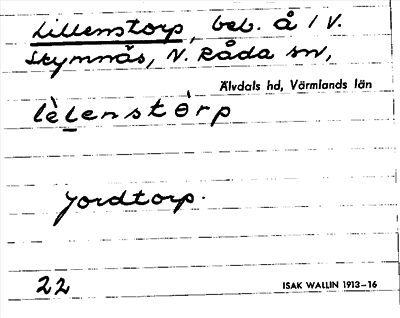 Lillenstorp, beb. å 1 V.
Skymnäs, N. Råda sn,
Älvdals hd, Värmlands län
lèlenstɵ̀rp
Jordtorp.
22
ISAK WALLIN 1913–16